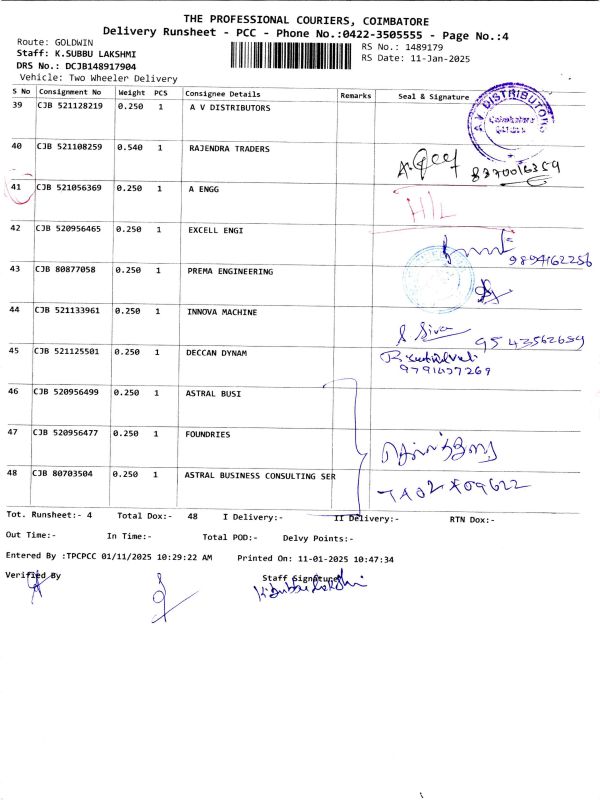 THE PROFESSIONAL COURIERS, COIMBATORE
Delivery Runsheet - PCC - Phone No.:0422-3505555 - Page No.:4
Route: GOLDWIN
RS No.: 1489179
Staff: K.SUBBU LAKSHMI
RS Date: 11-Jan-2025
DRS No.: DCJB148917904
Vehicle: Two Wheeler Delivery
S No Consignment No Weight PCS Consignee Details Remarks Seal & Signature
39 CJB 521128219 0.250 1 A V DISTRIBUTORS
A V DISTRIBUTORS
Coimbatore
40 CJB 521108259 0.540 1 RAJENDRA TRADERS
8370016359
41 CJB 521056369 0.250 1 A ENGG
H/L
42 CJB 520956465 0.250 1 EXCELL ENGI
9894162256
43 CJB 80877058 0.250 1 PREMA ENGINEERING
44 CJB 521133961 0.250 1 INNOVA MACHINE
S Siva 9543562659
45 CJB 521125501 0.250 1 DECCAN DYNAM
9791437269
46 CJB 520956499 0.250 1 ASTRAL BUSI
47 CJB 520956477 0.250 1 FOUNDRIES
48 CJB 80703504 0.250 1 ASTRAL BUSINESS CONSULTING SER
Tot. Runsheet:- 4 Total Dox:- 48 I Delivery:- II Delivery:- RTN Dox:-
Out Time:- In Time:- Total POD:- Delvy Points:-
Entered By :TPCPCC 01/11/2025 10:29:22 AM Printed On: 11-01-2025 10:47:34
Verified By Staff Signature
K.Subbulakshmi